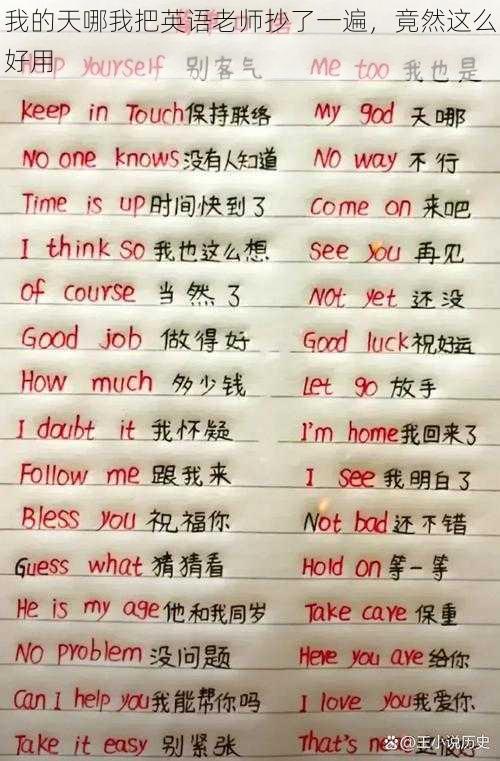 我的天哪我把英语老师抄了一遍，竟然这么
好用
Help yourself 别客气 Me too 我也是
keep in Touch保持联络 My god 天哪
No one knows没有人知道 No way 不行
Time is up时间快到了 come on 来吧
I think so 我也这么想 see you 再见
of course 当然了 Not yet 还没
Good job 做得好 Good luck祝好运
How much 多少钱 Let go 放手
I doubt it 我怀疑 I'm home我回来了
Follow me 跟我来 I see 我明白了
Bless you 祝福你 Not bad还不错
Guess what 猜猜看 Hold on 等一等
He is my age他和我同岁 Take care 保重
No problem 没问题 Here you are给你
Can I help you我能帮你吗 I love you我爱你
Take it easy 别紧张 That's
@王小说历史